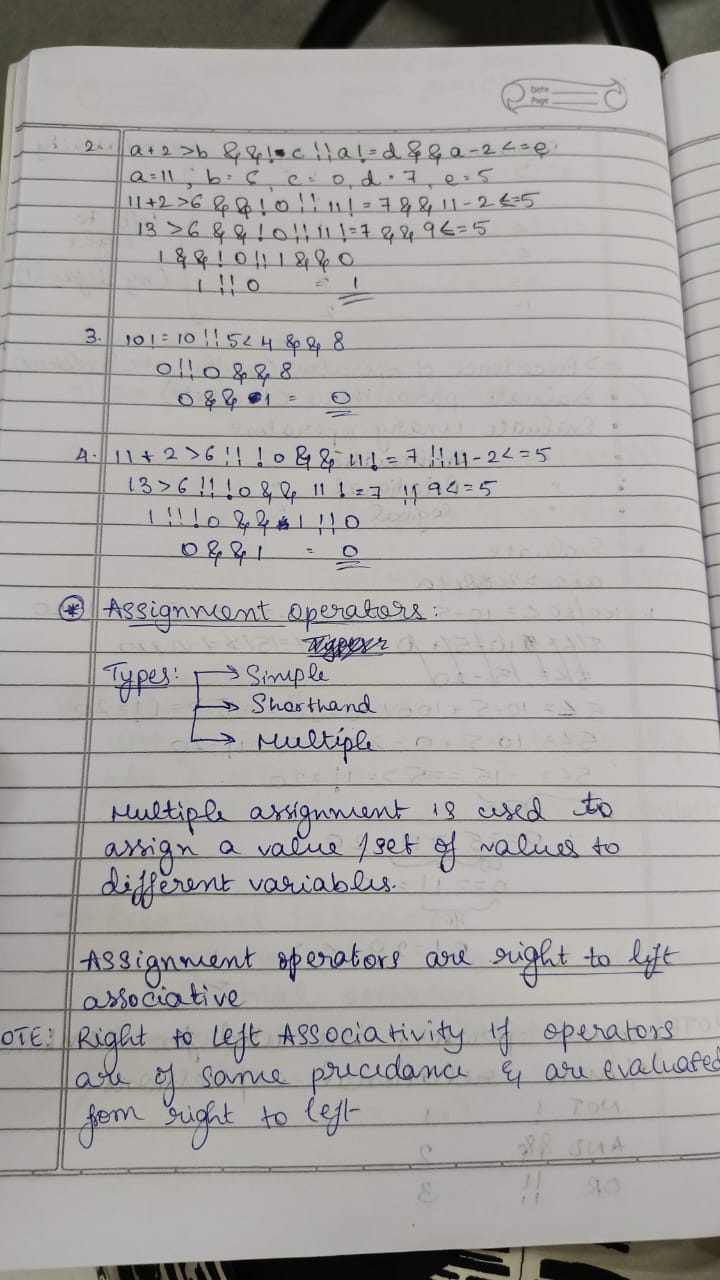 Date
Page
2. a+2>b && !c !! a!=d && a-2<=e
a=11, b=6, c=0, d=7, e=5
11+2>6 && !0 !! 11!=7 && 11-2<=5
13>6 && !0 !! 11!=7 && 9<=5
1 && !0 !! 1 && 0
1 !! 0 = 1
3. 10!=10 !! 5<4 && 8
0 !! 0 && 8
0 && 1 = 0
4. 11+2>6 !! !0 && 11!=7 !! 11-2<=5
13>6 !! !0 && 11!=7 !! 9<=5
1 !! !0 && 1 !! 0
0 && 1 = 0
* Assignment operators:
Types: → Simple
→ Shorthand
→ Multiple
Multiple assignment is used to
assign a value / set of values to
different variables.
Assignment operators are right to left
associative
OTE: Right to Left Associativity if operators
are of same precedance & are evaluated
from right to left
NOT ! 1
AND && 2
OR !! 3